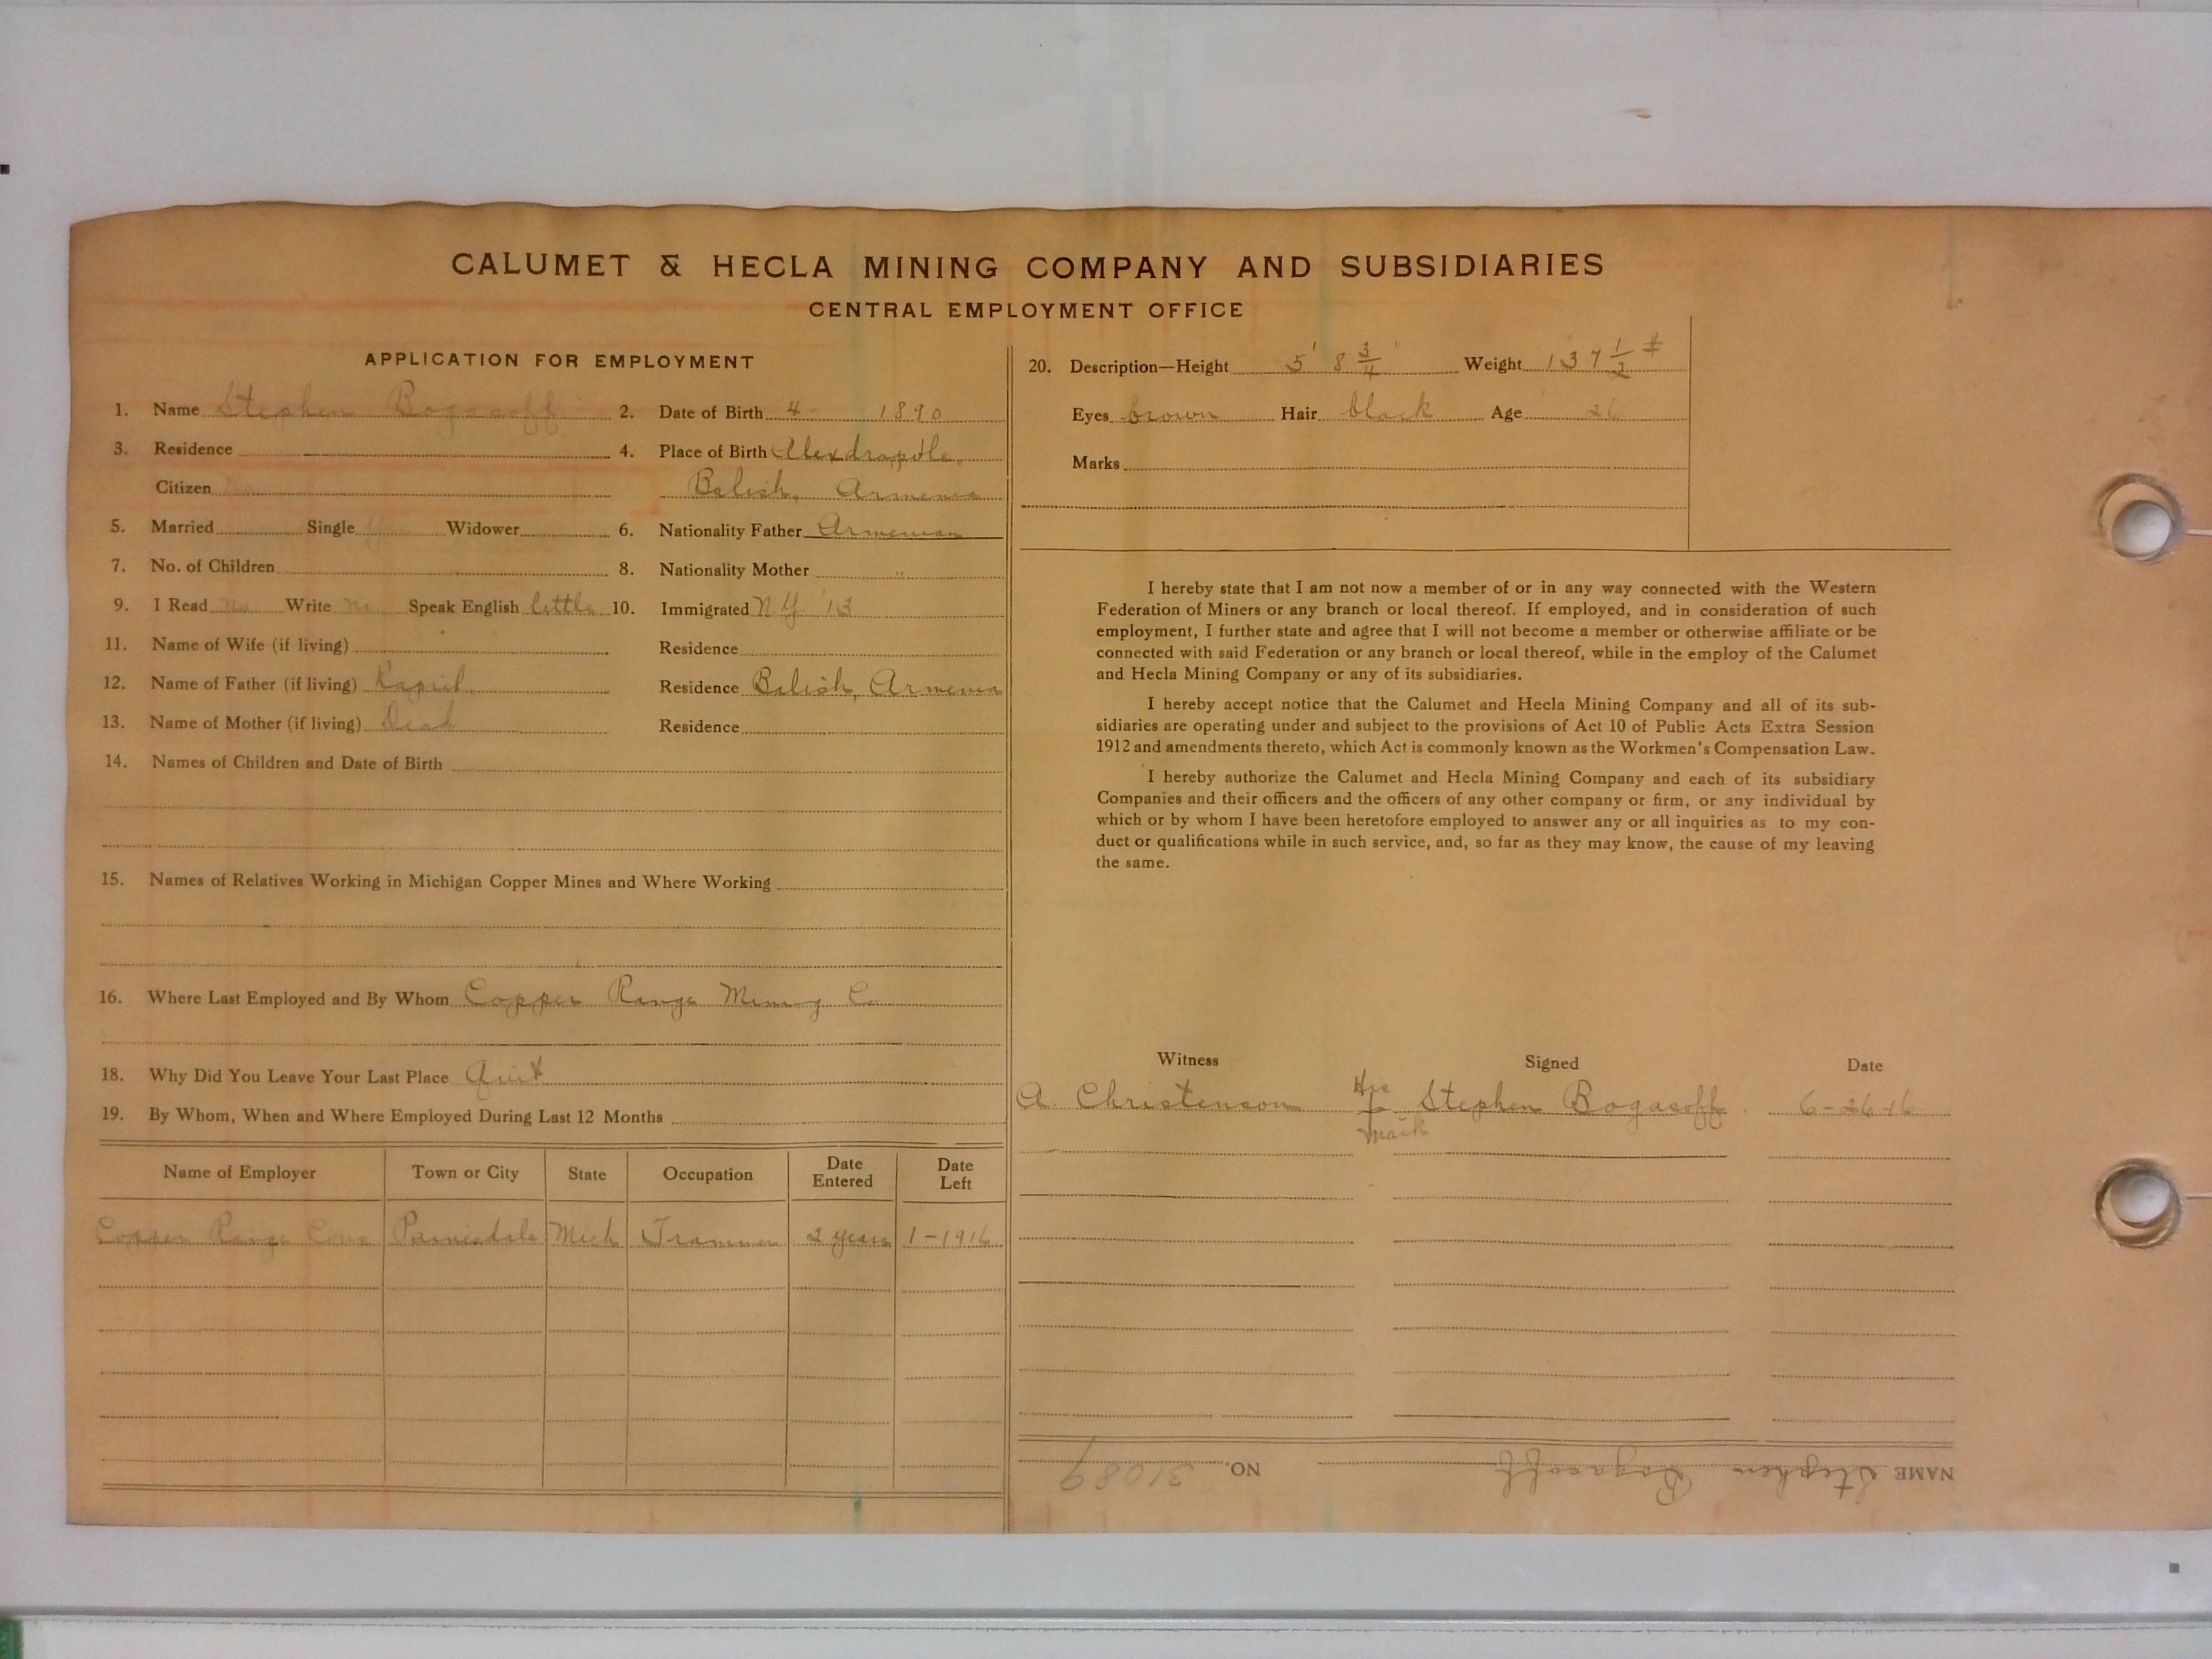 CALUMET & HECLA MINING COMPANY AND SUBSIDIARIES
CENTRAL EMPLOYMENT OFFICE
APPLICATION FOR EMPLOYMENT
1. Name Stephen Bogasoff 2. Date of Birth 4 - 1890
3. Residence 4. Place of Birth Alexdrapole,
Citizen No Belish, Armenia
5. Married Single Yes Widower 6. Nationality Father Armenian
7. No. of Children 8. Nationality Mother "
9. I Read no Write no Speak English little 10. Immigrated N Y '13
11. Name of Wife (if living) Residence
12. Name of Father (if living) Residence Belish, Armenia
13. Name of Mother (if living) Dead Residence
14. Names of Children and Date of Birth
15. Names of Relatives Working in Michigan Copper Mines and Where Working
16. Where Last Employed and By Whom Copper Range Mining Co
18. Why Did You Leave Your Last Place Quit
19. By Whom, When and Where Employed During Last 12 Months
Name of Employer Town or City State Occupation Date Entered Date Left
Copper Range Cons Painesdale Mich Trammer 2 years 1-1916
20. Description—Height 5' 8 3/4" Weight 137 1/2 #
Eyes brown Hair black Age 26
Marks
I hereby state that I am not now a member of or in any way connected with the Western
Federation of Miners or any branch or local thereof. If employed, and in consideration of such
employment, I further state and agree that I will not become a member or otherwise affiliate or be
connected with said Federation or any branch or local thereof, while in the employ of the Calumet
and Hecla Mining Company or any of its subsidiaries.
I hereby accept notice that the Calumet and Hecla Mining Company and all of its sub-
sidiaries are operating under and subject to the provisions of Act 10 of Public Acts Extra Session
1912 and amendments thereto, which Act is commonly known as the Workmen's Compensation Law.
I hereby authorize the Calumet and Hecla Mining Company and each of its subsidiary
Companies and their officers and the officers of any other company or firm, or any individual by
which or by whom I have been heretofore employed to answer any or all inquiries as to my con-
duct or qualifications while in such service, and, so far as they may know, the cause of my leaving
the same.
Witness Signed Date
A Christenson His + mark Stephen Bogasoff. 6-26-16
NAME Stephen Bogasoff NO. 31089